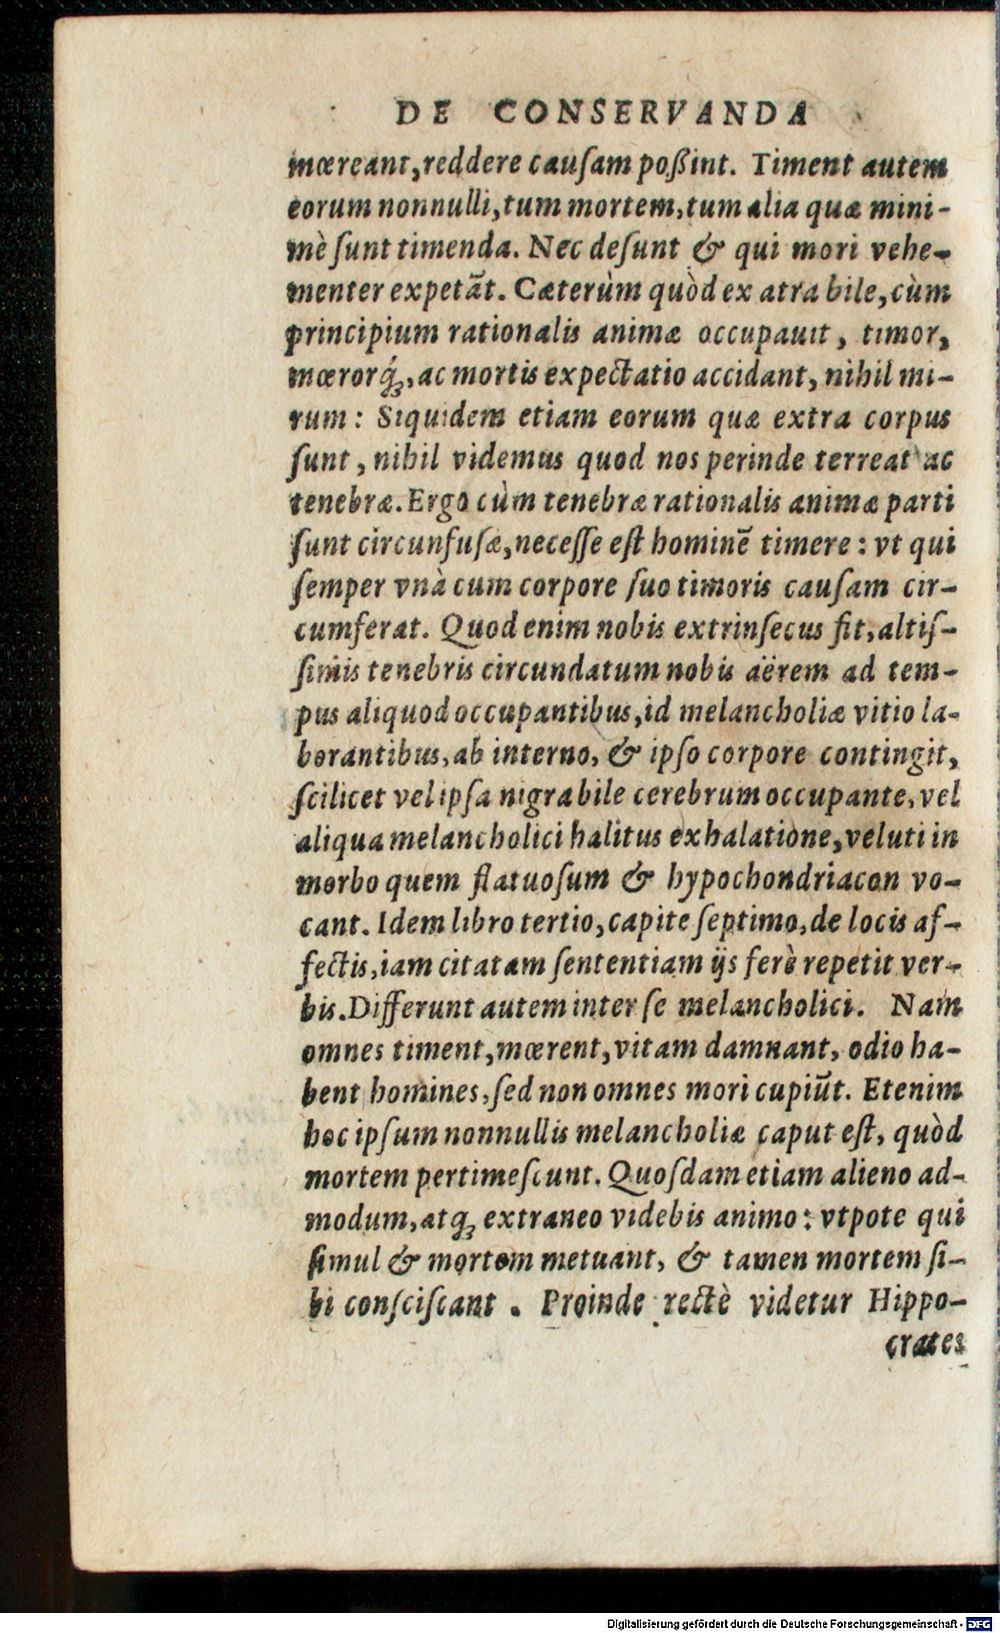 DE CONSERVANDA
mœreant, reddere cauſam poßint. Timent autem
eorum nonnulli, tum mortem, tum alia quæ mini-
mè ſunt timenda. Nec deſunt & qui mori vehe-
menter expetāt. Cæterùm quòd ex atra bile, cùm
principium rationalis animæ occupauit, timor,
mœrorq́;, ac mortis expectatio accidant, nihil mi-
rum: Siquidem etiam eorum quæ extra corpus
ſunt, nihil videmus quod nos perinde terreat ac
tenebræ. Ergo cùm tenebræ rationalis animæ parti
ſunt circunfuſæ, neceſſe eſt hominē timere: vt qui
ſemper vnà cum corpore ſuo timoris cauſam cir-
cumferat. Quod enim nobis extrinſecus fit, altiſ-
ſimis tenebris circundatum nobis aërem ad tem-
pus aliquod occupantibus, id melancholiæ vitio la-
borantibus, ab interno, & ipſo corpore contingit,
ſcilicet vel ipſa nigra bile cerebrum occupante, vel
aliqua melancholici halitus exhalatione, veluti in
morbo quem flatuoſum & hypochondriacon vo-
cant. Idem libro tertio, capite ſeptimo, de locis af-
fectis, iam citatam ſententiam ijs ferè repetit ver-
bis. Differunt autem inter ſe melancholici. Nam
omnes timent, mœrent, vitam damnant, odio ha-
bent homines, ſed non omnes mori cupiūt. Etenim
hoc ipſum nonnullis melancholiæ caput eſt, quòd
mortem pertimeſcunt. Quoſdam etiam alieno ad-
modum, atq; extraneo videbis animo: vtpote qui
ſimul & mortem metuant, & tamen mortem ſi-
bi conſciſcant. Proinde rectè videtur Hippo-
crates
Digitalisierung gefördert durch die Deutsche Forschungsgemeinschaft - DFG